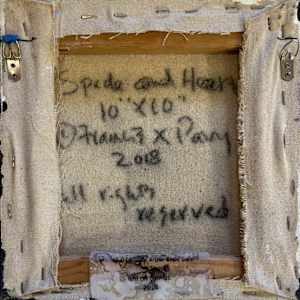 Spade and Heart
10" X 10"
© Francis X Pavy
2018
All rights
reserved
2018